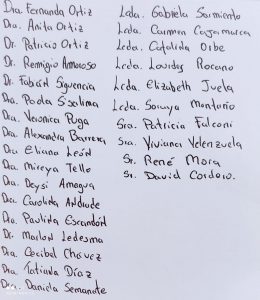 Dra. Fernanda Ortiz
Dra. Anita Ortiz
Dr. Patricio Ortiz
Dr. Remigio Amoroso
Dr. Fabián Siguencia
Dra. Paola Sisalima
Dra. Veronica Puga
Dra. Alexandra Barrera
Dra. Eliana León
Dra. Mireya Tello
Dra. Deysi Amagua
Dra. Carolina Andrade
Dra. Paulina Escandón
Dr. Marlon Ledesma
Dra. Cecibel Chávez
Dra. Tatiana Díaz
Dra. Daniela Semanate
Lcda. Gabriela Sarmiento
Lcda. Carmen Cajamarca
Lcda. Catalida Orbe
Lcda. Lourdes Rocano
Lcda. Elizabeth Juela
Lcda. Soraya Montario
Sra. Patricia Falconi
Sra. Viviana Velenzuela
Sr. René Mora
Sr. David Cordero.